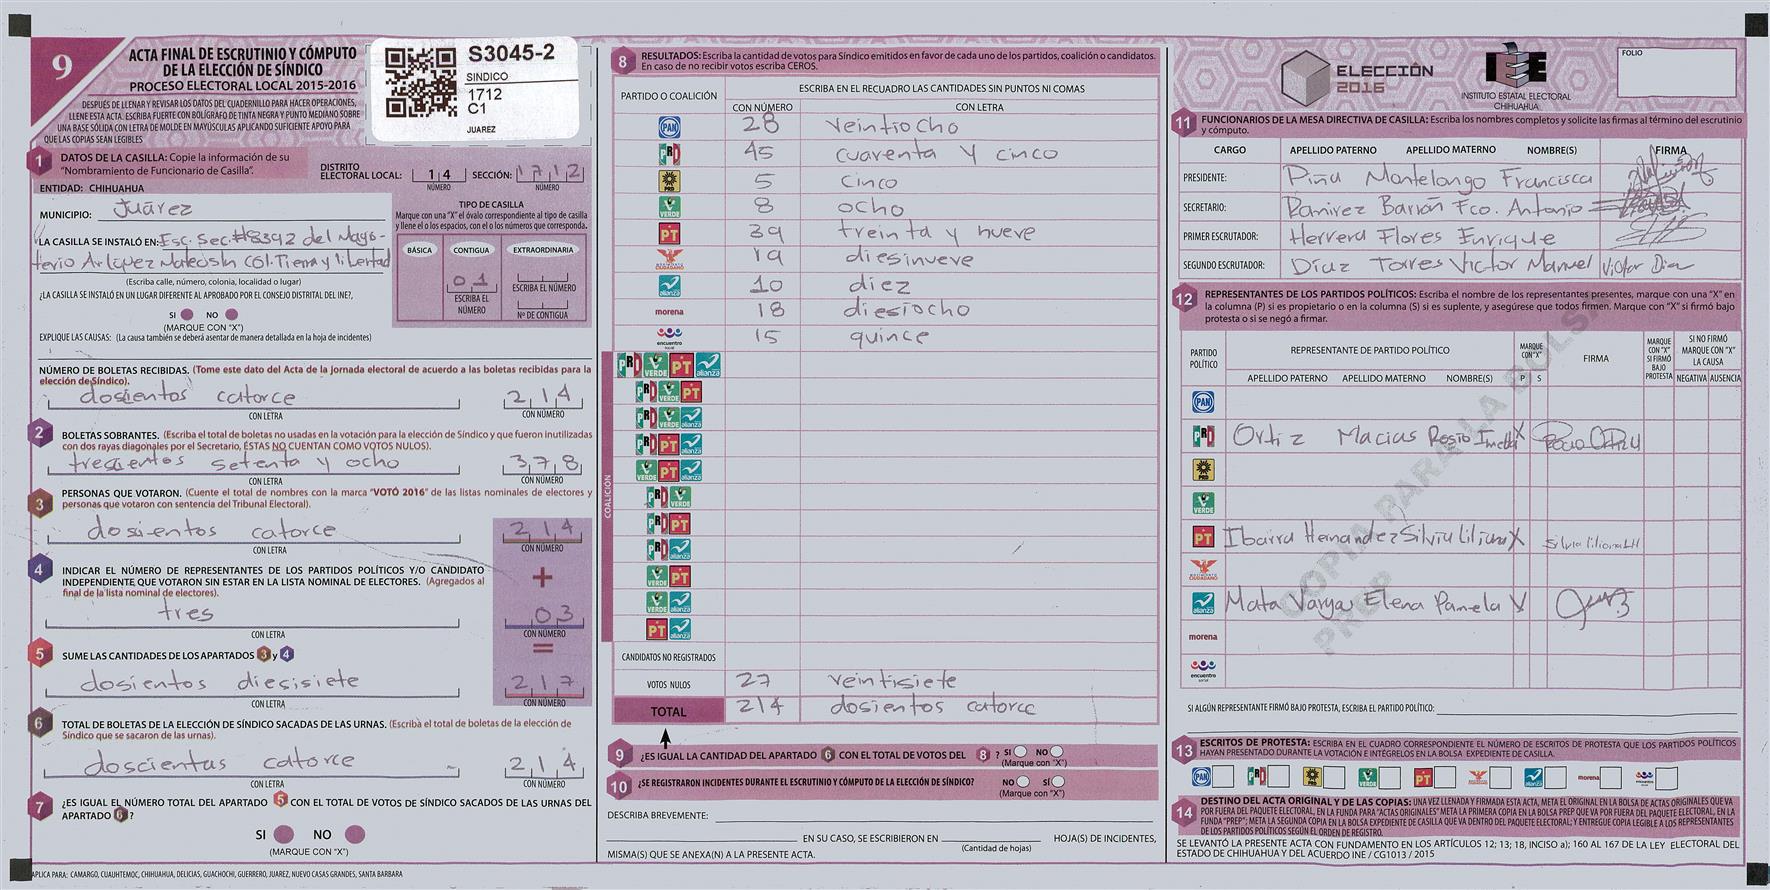 9
ACTA FINAL DE ESCRUTINIO Y CÓMPUTO
DE LA ELECCIÓN DE SÍNDICO
PROCESO ELECTORAL LOCAL 2015-2016
DESPUÉS DE LLENAR Y REVISAR LOS DATOS DEL CUADERNILLO PARA HACER OPERACIONES,
LLENE ESTA ACTA. ESCRIBA FUERTE CON BOLÍGRAFO DE TINTA NEGRA Y PUNTO MEDIANO SOBRE
UNA BASE SÓLIDA CON LETRA DE MOLDE EN MAYÚSCULAS APLICANDO SUFICIENTE APOYO PARA
QUE LAS COPIAS SEAN LEGIBLES
S3045-2
SINDICO
1712
C1
JUAREZ
1 DATOS DE LA CASILLA: Copie la información de su
"Nombramiento de Funcionario de Casilla".
DISTRITO ELECTORAL LOCAL: 14 NÚMERO SECCIÓN: 1712 NÚMERO
ENTIDAD: CHIHUAHUA
MUNICIPIO: Juárez
LA CASILLA SE INSTALÓ EN: Esc. Sec. #8392 del Mayo-
(Escriba calle, número, colonia, localidad o lugar)
TIPO DE CASILLA
Marque con una "X" el óvalo correspondiente al tipo de casilla
y llene el o los espacios, con el o los números que corresponda.
BÁSICA CONTIGUA EXTRAORDINARIA
01
ESCRIBA EL NÚMERO
ESCRIBA EL NÚMERO
Nº DE CONTIGUA
¿LA CASILLA SE INSTALÓ EN UN LUGAR DIFERENTE AL APROBADO POR EL CONSEJO DISTRITAL DEL INE?,
SI NO
(MARQUE CON "X")
EXPLIQUE LAS CAUSAS: (La causa también se deberá asentar de manera detallada en la hoja de incidentes)
NÚMERO DE BOLETAS RECIBIDAS. (Tome este dato del Acta de la jornada electoral de acuerdo a las boletas recibidas para la
elección de Síndico).
dosientos catorce 214
CON LETRA CON NÚMERO
2 BOLETAS SOBRANTES. (Escriba el total de boletas no usadas en la votación para la elección de Síndico y que fueron inutilizadas
con dos rayas diagonales por el Secretario, ÉSTAS NO CUENTAN COMO VOTOS NULOS).
trescientos setenta y ocho 378
CON LETRA CON NÚMERO
3 PERSONAS QUE VOTARON. (Cuente el total de nombres con la marca "VOTÓ 2016" de las listas nominales de electores y
personas que votaron con sentencia del Tribunal Electoral).
dosientos catorce 214
CON LETRA CON NÚMERO
4 INDICAR EL NÚMERO DE REPRESENTANTES DE LOS PARTIDOS POLÍTICOS Y/O CANDIDATO
INDEPENDIENTE QUE VOTARON SIN ESTAR EN LA LISTA NOMINAL DE ELECTORES. (Agregados al
final de la lista nominal de electores).
+
tres 03
CON LETRA CON NÚMERO
5 SUME LAS CANTIDADES DE LOS APARTADOS 3 y 4
=
dosientos diesisiete 217
CON LETRA CON NÚMERO
6 TOTAL DE BOLETAS DE LA ELECCIÓN DE SÍNDICO SACADAS DE LAS URNAS. (Escriba el total de boletas de la elección de
Síndico que se sacaron de las urnas).
doscientas catorce 214
CON LETRA CON NÚMERO
7 ¿ES IGUAL EL NÚMERO TOTAL DEL APARTADO 5 CON EL TOTAL DE VOTOS DE SÍNDICO SACADOS DE LAS URNAS DEL
APARTADO 6?
SI NO
(MARQUE CON "X")
APLICA PARA: CAMARGO, CUAUHTEMOC, CHIHUAHUA, DELICIAS, GUACHOCHI, GUERRERO, JUAREZ, NUEVO CASAS GRANDES, SANTA BARBARA
8 RESULTADOS: Escriba la cantidad de votos para Síndico emitidos en favor de cada uno de los partidos, coalición o candidatos.
En caso de no recibir votos escriba CEROS.
PARTIDO O COALICIÓN ESCRIBA EN EL RECUADRO LAS CANTIDADES SIN PUNTOS NI COMAS
CON NÚMERO CON LETRA
PAN 28 veintiocho
PRD 45 cuarenta y cinco
PRD 5 cinco
VERDE 8 ocho
PT 39 treinta y nueve
MOVIMIENTO CIUDADANO 19 diesinueve
alianza 10 diez
morena 18 diesiocho
encuentro social 15 quince
COALICIÓN
VERDE PT alianza
VERDE PT
VERDE alianza
PT alianza
VERDE PT alianza
VERDE
PT
alianza
VERDE PT
VERDE alianza
PT alianza
CANDIDATOS NO REGISTRADOS
VOTOS NULOS 27 veintisiete
TOTAL 214 dosientos catorce
9 ¿ES IGUAL LA CANTIDAD DEL APARTADO 6 CON EL TOTAL DE VOTOS DEL 8 ? SI NO
(Marque con "X")
10 ¿SE REGISTRARON INCIDENTES DURANTE EL ESCRUTINIO Y CÓMPUTO DE LA ELECCIÓN DE SÍNDICO? NO SÍ
(Marque con "X")
DESCRIBA BREVEMENTE:
EN SU CASO, SE ESCRIBIERON EN HOJA(S) DE INCIDENTES,
(Cantidad de hojas)
MISMA(S) QUE SE ANEXA(N) A LA PRESENTE ACTA.
ELECCIÓN
2016
IEE
INSTITUTO ESTATAL ELECTORAL
CHIHUAHUA
FOLIO
11 FUNCIONARIOS DE LA MESA DIRECTIVA DE CASILLA: Escriba los nombres completos y solicite las firmas al término del escrutinio
y cómputo.
CARGO APELLIDO PATERNO APELLIDO MATERNO NOMBRE(S) FIRMA
PRESIDENTE: Piña Montelongo Francisca
SECRETARIO: Ramirez Barrón Fco. Antonio
PRIMER ESCRUTADOR: Herrera Flores Enrique
SEGUNDO ESCRUTADOR: Díaz Torres Victor Manuel Victor Diaz
12 REPRESENTANTES DE LOS PARTIDOS POLÍTICOS: Escriba el nombre de los representantes presentes, marque con una "X" en
la columna (P) si es propietario o en la columna (S) si es suplente, y asegúrese que todos firmen. Marque con "X" si firmó bajo
protesta o si se negó a firmar.
PARTIDO POLÍTICO REPRESENTANTE DE PARTIDO POLÍTICO MARQUE CON "X" FIRMA MARQUE CON "X" SI FIRMÓ BAJO PROTESTA SI NO FIRMÓ MARQUE CON "X" LA CAUSA
APELLIDO PATERNO APELLIDO MATERNO NOMBRE(S) P S NEGATIVA AUSENCIA
PAN
Ortiz Macias Rosio X
PRD
VERDE
PT Ibarra Hernandez Silvia Liliana X
MOVIMIENTO CIUDADANO
alianza Mata Vargas Elena Pamela X
morena
encuentro social
COPIA PARA LA BOLSA
PREP
SI ALGÚN REPRESENTANTE FIRMÓ BAJO PROTESTA, ESCRIBA EL PARTIDO POLÍTICO:
13 ESCRITOS DE PROTESTA: ESCRIBA EN EL CUADRO CORRESPONDIENTE EL NÚMERO DE ESCRITOS DE PROTESTA QUE LOS PARTIDOS POLÍTICOS
HAYAN PRESENTADO DURANTE LA VOTACIÓN E INTÉGRELOS EN LA BOLSA EXPEDIENTE DE CASILLA.
14 DESTINO DEL ACTA ORIGINAL Y DE LAS COPIAS: UNA VEZ LLENADA Y FIRMADA ESTA ACTA, META EL ORIGINAL EN LA BOLSA DE ACTAS ORIGINALES QUE VA
POR FUERA DEL PAQUETE ELECTORAL, EN LA FUNDA PARA "ACTAS ORIGINALES" META LA PRIMERA COPIA EN LA BOLSA PREP QUE VA POR FUERA DEL PAQUETE ELECTORAL, EN LA
FUNDA "PREP"; META LA SEGUNDA COPIA EN LA BOLSA EXPEDIENTE DE CASILLA QUE VA DENTRO DEL PAQUETE ELECTORAL; Y ENTREGUE COPIA LEGIBLE A LOS REPRESENTANTES
DE LOS PARTIDOS POLÍTICOS SEGÚN EL ORDEN DE REGISTRO.
SE LEVANTÓ LA PRESENTE ACTA CON FUNDAMENTO EN LOS ARTÍCULOS 12; 13; 18, INCISO a); 160 AL 167 DE LA LEY ELECTORAL DEL
ESTADO DE CHIHUAHUA Y DEL ACUERDO INE / CG1013 / 2015